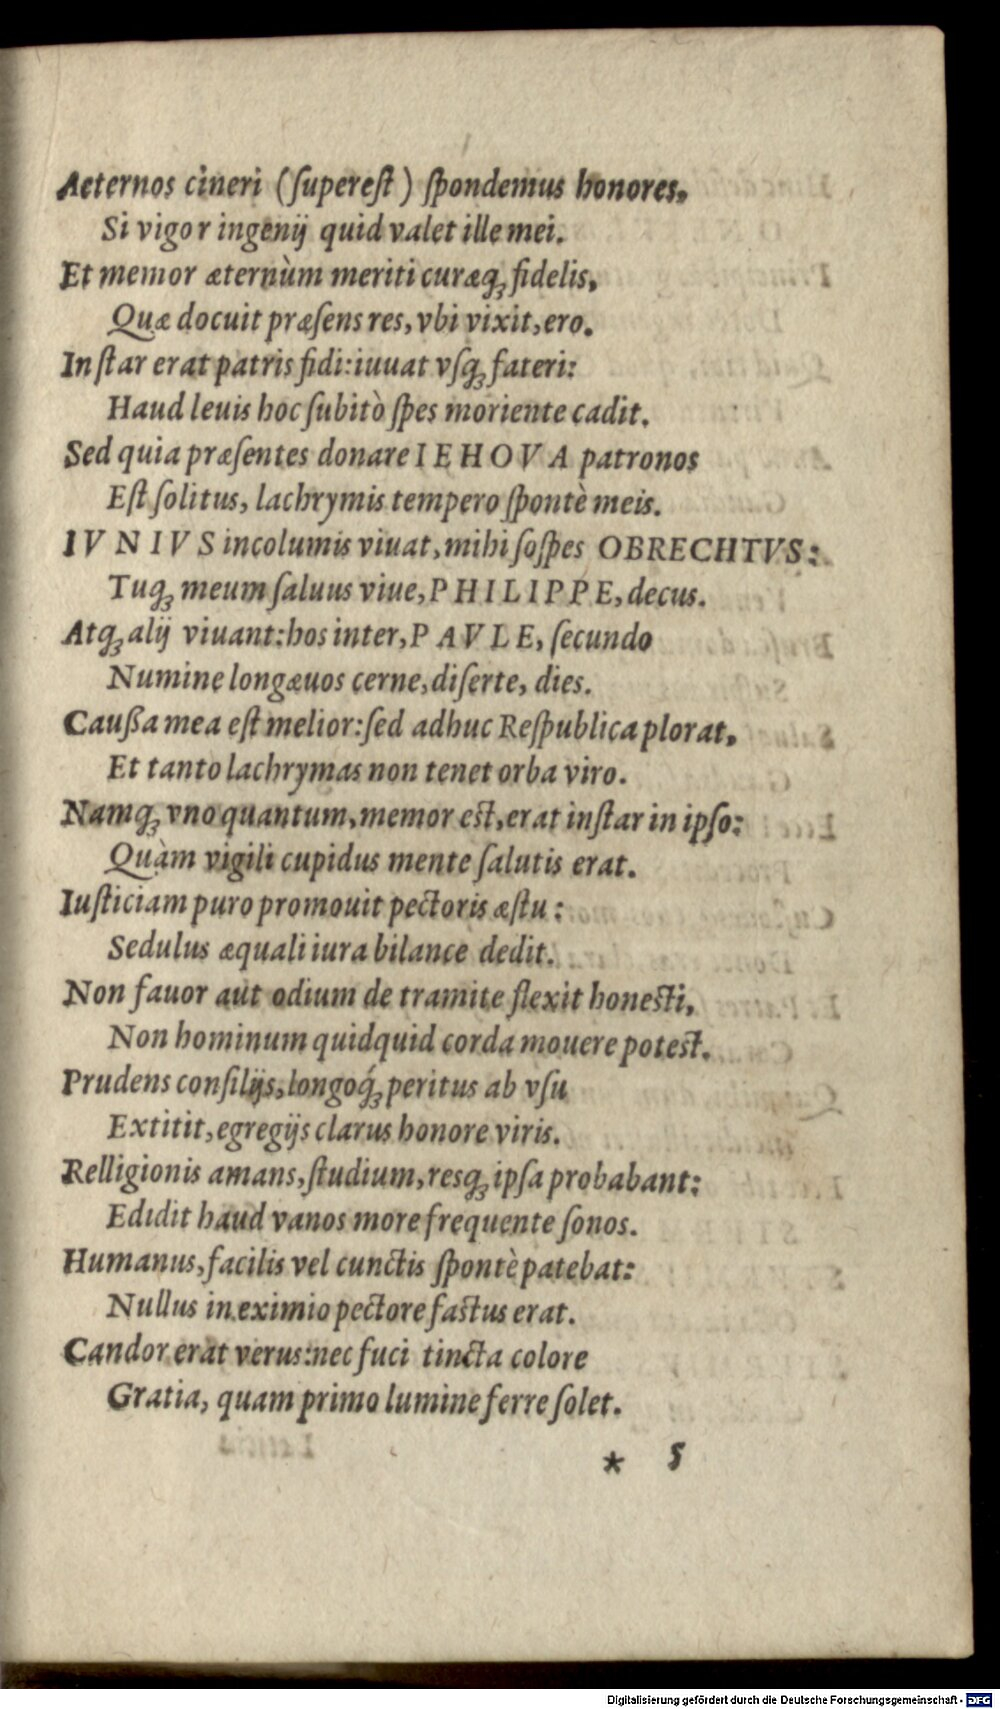 Aeternos cineri (ſupereſt) ſpondemus honores,
Si vigor ingenij quid valet ille mei.
Et memor æternùm meriti curæq́ꝫ fidelis,
Quæ docuit præſens res, vbi vixit, ero.
Inſtar erat patris fidi: iuuat vſqꝫ fateri:
Haud leuis hoc ſubitò ſpes moriente cadit.
Sed quia præſentes donare IEHOVA patronos
Eſt ſolitus, lachrymis tempero ſpontè meis.
IVNIVS incolumis viuat, mihi ſoſpes OBRECHTVS:
Tuqꝫ meum ſaluus viue, PHILIPPE, decus.
Atqꝫ alij viuant: hos inter, PAVLE, ſecundo
Numine longæuos cerne, diſerte, dies.
Cauſſa mea eſt melior: ſed adhuc Reſpublica plorat,
Et tanto lachrymas non tenet orba viro.
Namqꝫ vno quantum, memor est, erat inſtar in ipſo:
Quàm vigili cupidus mente ſalutis erat.
Iuſticiam puro promouit pectoris æſtu:
Sedulus æquali iura bilance dedit.
Non fauor aut odium de tramite flexit honesti,
Non hominum quidquid corda mouere potest.
Prudens conſilijs, longoq́ꝫ peritus ab vſu
Extitit, egregijs clarus honore viris.
Relligionis amans, ſtudium, resqꝫ ipſa probabant:
Edidit haud vanos more frequente ſonos.
Humanus, facilis vel cunctis ſpontè patebat:
Nullus in eximio pectore fastus erat.
Candor erat verus: nec fuci tincta colore
Gratia, quam primo lumine ferre ſolet.
* 5
Digitalisierung gefördert durch die Deutsche Forschungsgemeinschaft - DFG